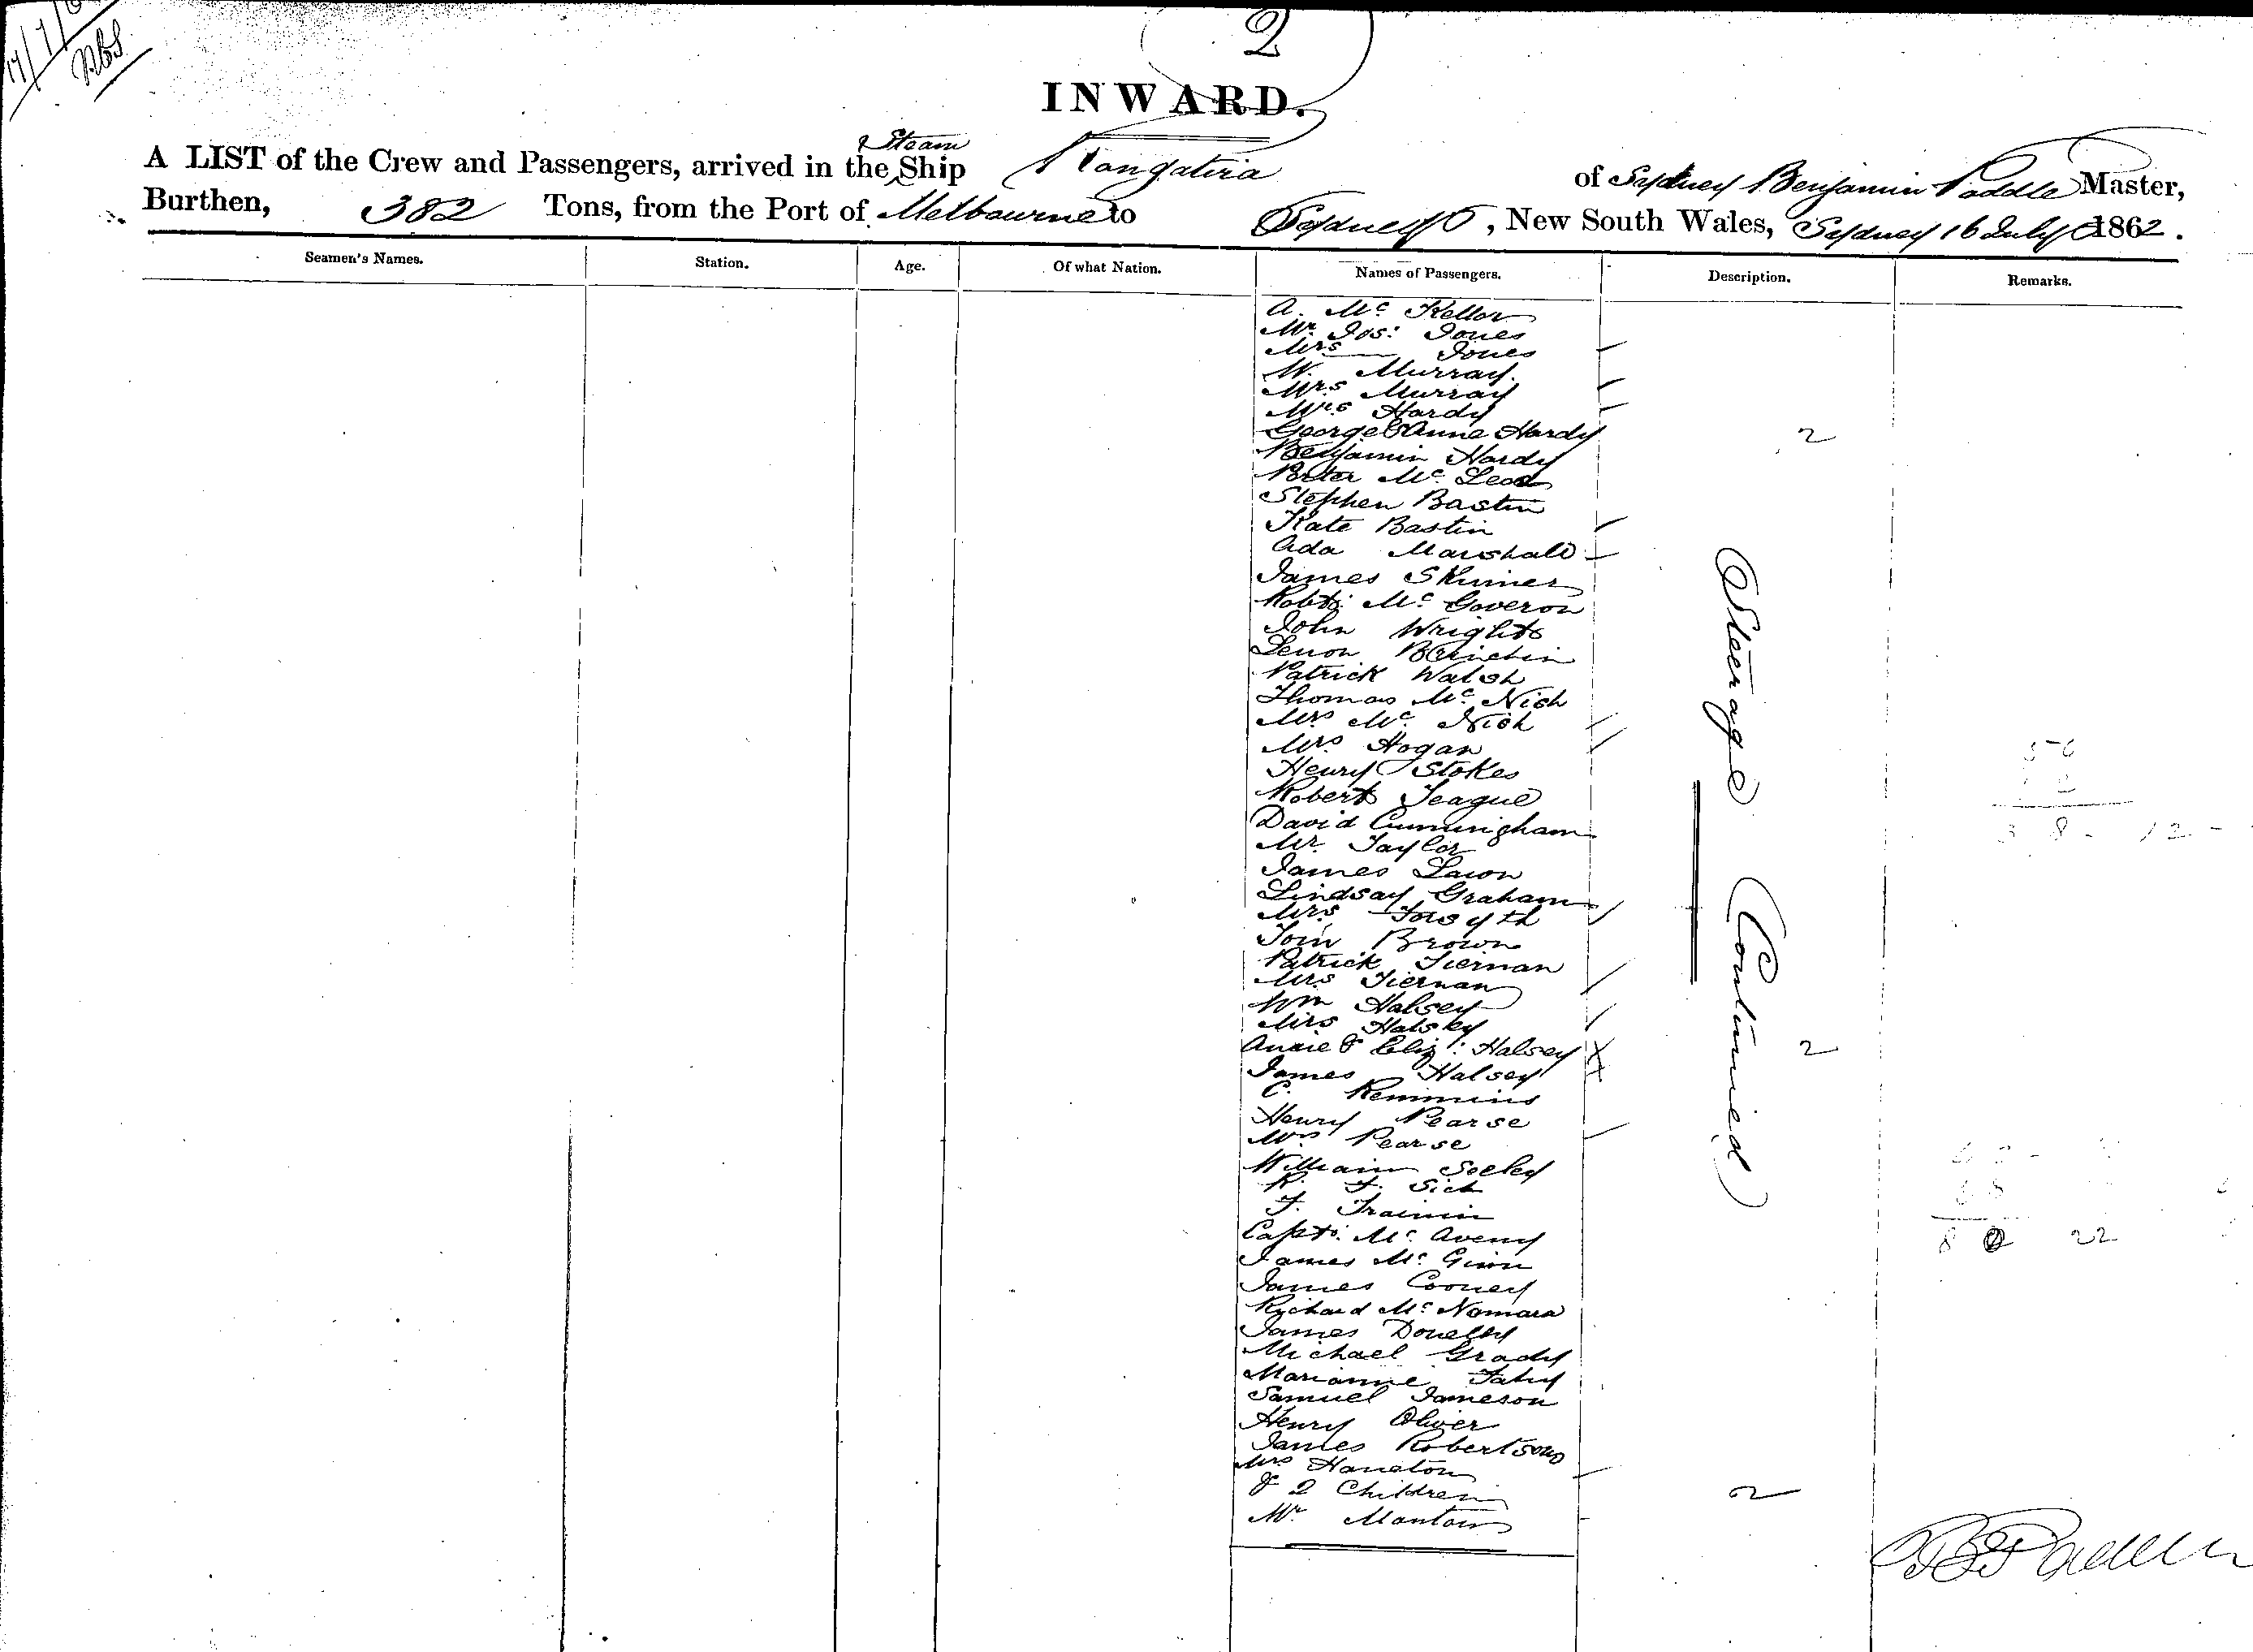 2
INWARD.
A LIST of the Crew and Passengers, arrived in the Steam Ship Rangatira of Sydney Benjamin Paddle Master,
Burthen, 382 Tons, from the Port of Melbourne to Sydney, New South Wales, Sydney 16 July 1862.
Seamen's Names. Station. Age. Of what Nation. Names of Passengers. Description. Remarks.
A. Mc Kellor
Mr. Jos: Jones
Mrs Jones
W. Murray.
Mrs Murray
Mrs Hardy
George & Anne Hardy 2
Benjamin Hardy
Peter Mc Leod
Stephen Bastin
Kate Bastin
Ada Marshall
James Skinner
Robt. Mc Goveron
John Wright
Patrick Walsh
Thomas Mc Nish
Mrs Mc Nish
Mrs Hogan
Henry Stokes
Robert Teague
David Cunningham
Mr. Taylor
James
Lindsay Graham
Mrs Forsyth
Brown
Patrick Tiernan
Mrs Tiernan
Wm Halsey
Mrs Halsey
Annie & Eliz: Halsey 2
James Halsey
C. Remmins
Henry Pearse
Mrs Pearse
William Seeley
F.
Capt. Mc
James Mc
James Cooney
Richard Mc Namara
James
Michael Grady
Marianne Fahy
Samuel Jameson
Henry Oliver
James Robertson
Mrs
& 2 Children 2
Mr. Manton
Steerage Continued
8 12
22